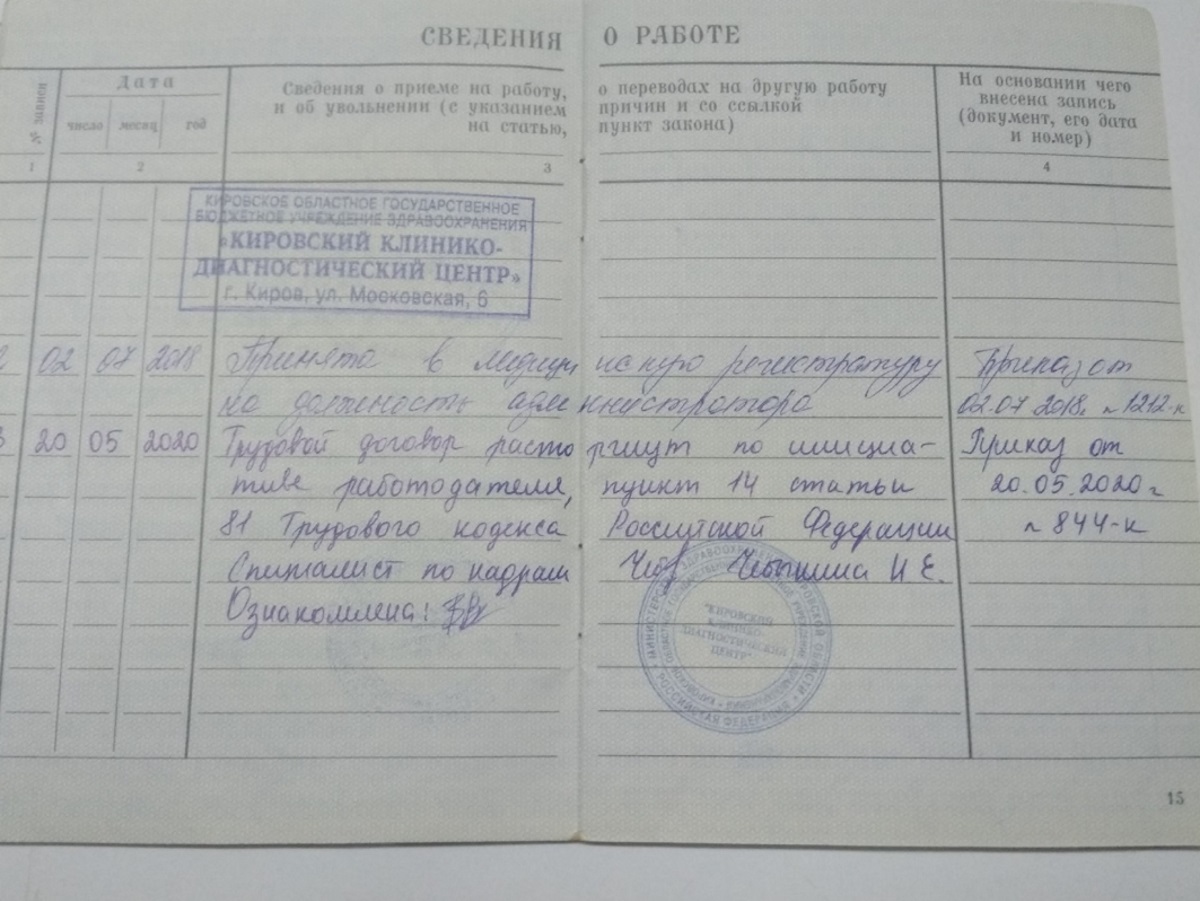 СВЕДЕНИЯ О РАБОТЕ
№ записи
Дата
число месяц год
Сведения о приеме на работу, о переводах на другую работу
и об увольнении (с указанием причин и со ссылкой
на статью, пункт закона)
На основании чего
внесена запись
(документ, его дата
и номер)
1 2 3 4
КИРОВСКОЕ ОБЛАСТНОЕ ГОСУДАРСТВЕННОЕ
БЮДЖЕТНОЕ УЧРЕЖДЕНИЕ ЗДРАВООХРАНЕНИЯ
«КИРОВСКИЙ КЛИНИКО-
ДИАГНОСТИЧЕСКИЙ ЦЕНТР»
г. Киров, ул. Московская, 6
02 07 2018 Принята в медицинскую регистратуру Приказ от
на должность администратора 02.07 2018г. №1212-к
3 20 05 2020 Трудовой договор расторгнут по инициа- Приказ от
тиве работодателя, пункт 14 статьи 20.05.2020г
81 Трудового кодекса Российской Федерации №844-к
Специалист по кадрам Чебыкина И Е.
Ознакомлена:
МИНИСТЕРСТВО ЗДРАВООХРАНЕНИЯ КИРОВСКОЙ ОБЛАСТИ
РОССИЙСКАЯ ФЕДЕРАЦИЯ
"КИРОВСКИЙ
КЛИНИКО-
ДИАГНОСТИЧЕСКИЙ
ЦЕНТР"
15